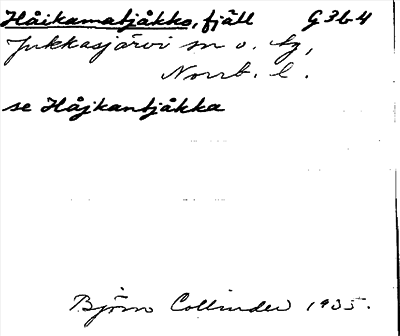 Håikamatjåkko, fjäll G 36 4
Jukkasjärvi sn o. tg,
Norrb. l.
se Håjkantjåkka
Björn Collinder 1935.